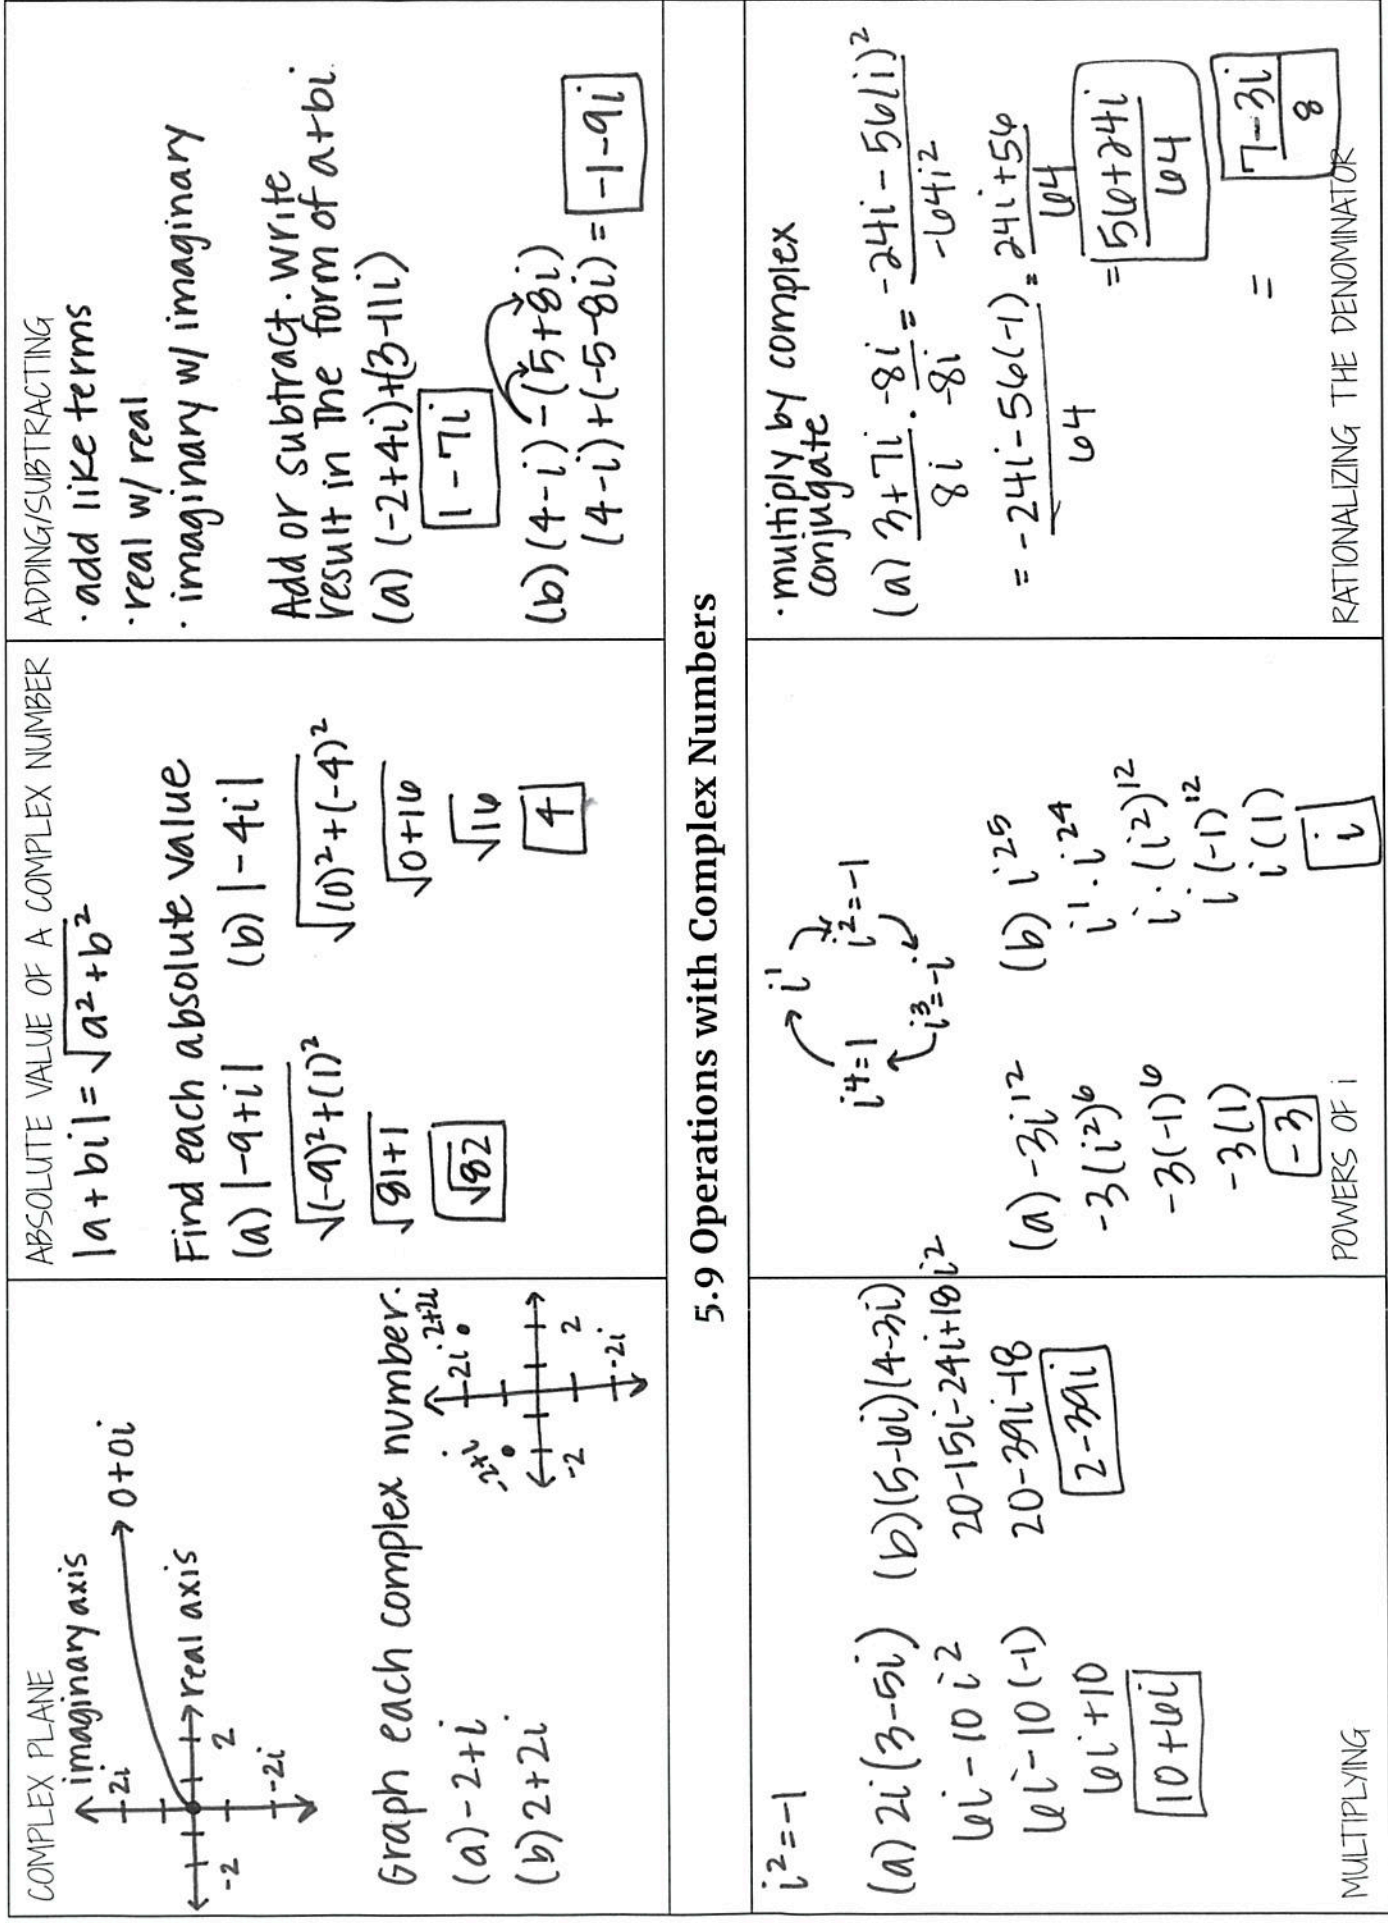 COMPLEX PLANE
imaginary axis
2i
0+0i
real axis
-2
2
-2i
Graph each complex number.
(a) -2+i
(b) 2+2i
-2+i
2i
2+2i
-2
2
-2i
ABSOLUTE VALUE OF A COMPLEX NUMBER
|a+bi| = √a²+b²
Find each absolute value
(a) |-9+i|
√(-9)²+(1)²
√81+1
√82
(b) |-4i|
√(0)²+(-4)²
√0+16
√16
4
ADDING/SUBTRACTING
· add like terms
· real w/ real
· imaginary w/ imaginary
Add or subtract. write
result in the form of a+bi.
(a) (-2+4i)+(3-11i)
1-7i
(b) (4-i)-(5+8i)
(4-i)+(-5-8i) = -1-9i
5.9 Operations with Complex Numbers
i²=-1
(a) 2i(3-5i)
6i-10i²
6i-10(-1)
6i+10
10+6i
(b) (5-6i)(4-3i)
20-15i-24i+18i²
20-39i-18
2-39i
MULTIPLYING
i¹
i²=-1
i³=-i
i⁴=1
(a) -3i¹²
-3(i²)⁶
-3(-1)⁶
-3(1)
-3
(b) i²⁵
i¹·i²⁴
i·(i²)¹²
i(-1)¹²
i(1)
i
POWERS OF i
· multiply by complex
conjugate
(a) 3+7i/8i · -8i/-8i = -24i-56(i)²/-64i²
= -24i-56(-1)/64 = 24i+56/64
= 56+24i/64
= 7-3i/8
RATIONALIZING THE DENOMINATOR